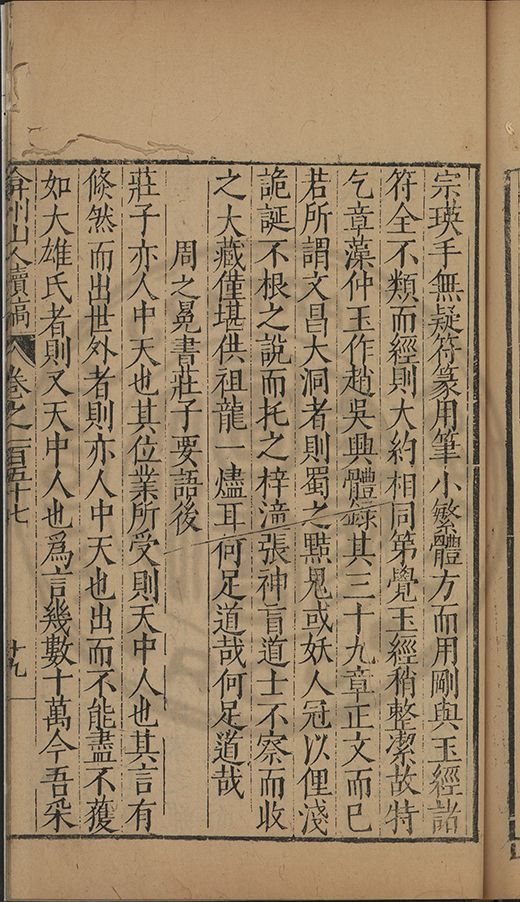 宗瑛手無疑符篆用筆小繁體方而用剛與玉經諸
符全不類而經則大約相同第覺玉經稍整潔故特
乞章藻仲玉作趙吳興體錄其三十九章正文而已
若所謂文昌大洞者則蜀之黠鬼或妖人冠以俚淺
詭誕不根之說而托之梓潼張神盲道士不察而收
之大藏僅堪供祖龍一燼耳何足道哉何足道哉
周之冕書莊子要語後
莊子亦人中天也其位業所受則天中人也其言有
倏然而出世外者則亦人中天也出而不能盡不蔆
如大雄氏者則又天中人也爲言幾數十萬今吾采
弇州山人續稿 卷之一百五十七 十九